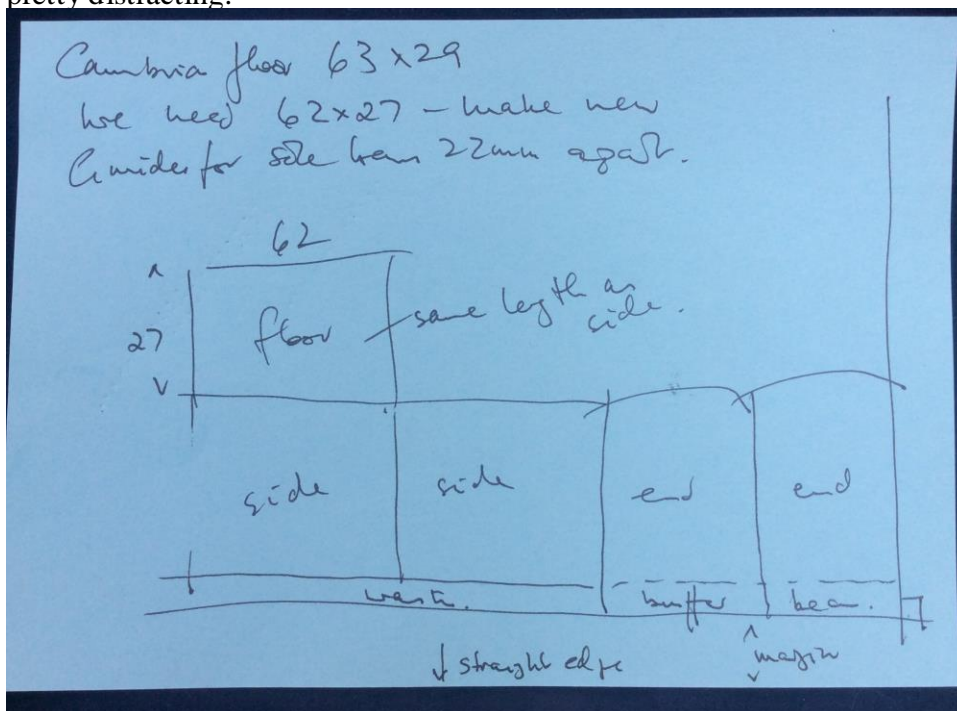 pretty distracting!
Cambria floor 63 x 29
we need 62 x 27 – make new
Consider for sole bars 22mm apart.
62
27
floor
same length as
side.
side side end end
waste. buffer beam.
↓ straight edge
margin